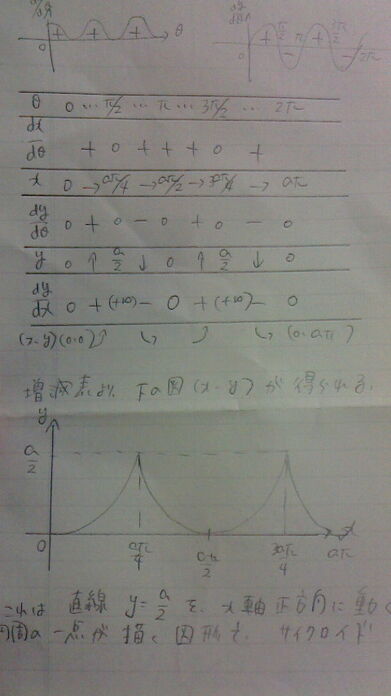 θ
0
+ + +
0
+ π/2 π + 3π/2
- - 2π
θ 0 … π/2 … π … 3π/2 … 2π
dx/dθ + 0 + + + 0 +
x 0 → aπ/4 → aπ/2 → 3aπ/4 → aπ
dy/dθ 0 + 0 - 0 + 0 - 0
y 0 ↑ a/2 ↓ 0 ↑ a/2 ↓ 0
dy/dx 0 + (+∞) - 0 + (+∞) - 0
(x, y) (0, 0) (0, aπ)
増減表より、下の図(x-y)が得られる。
y
a/2
0 aπ/4 aπ/2 3aπ/4 aπ x
これは 直線 y=a/2 を、x軸正方向に動く
円周の一点が描く図形で、サイクロイド